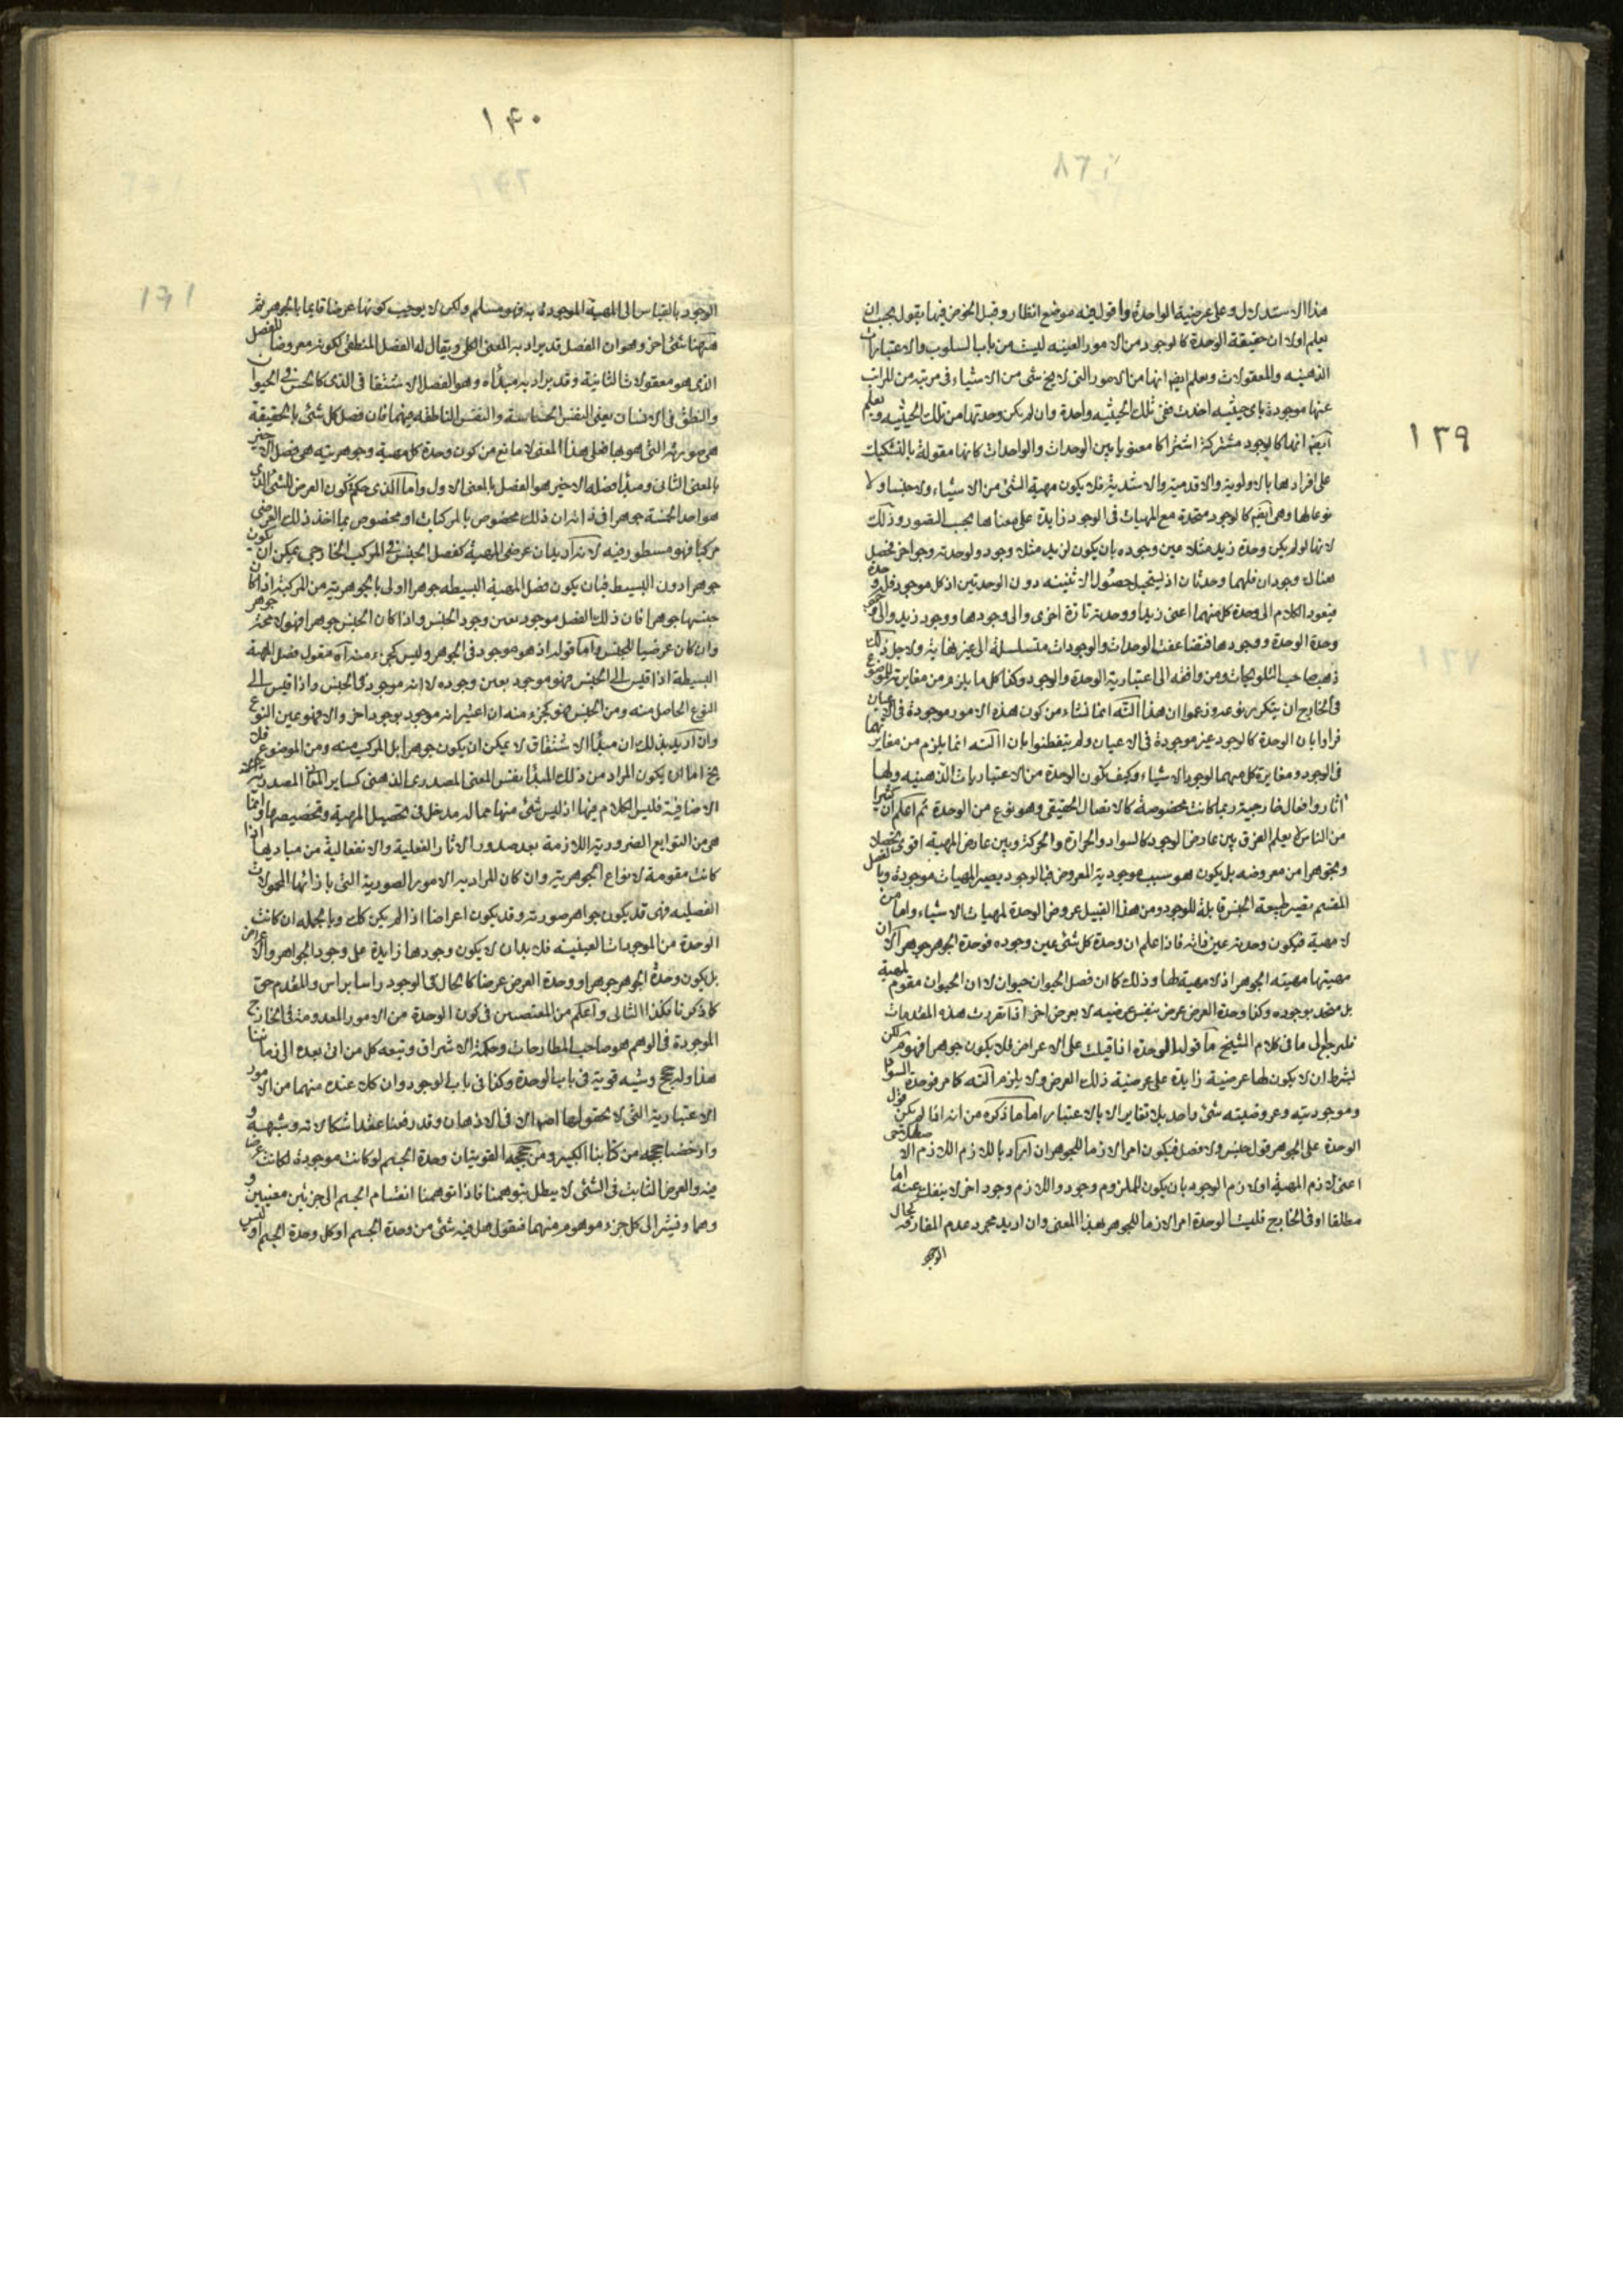 ١٣٩
هذا الاستدلال وعلى عرضية الواحدة واقول فيه موضع انظار وقبل الخوض فيها نقول يجب ان
يعلم اولا ان حقيقة الوحدة كالوجود من الامور العينيه ليست من باب السلوب والاعتبارات
الذهنيه والمعقولات ويعلم ايضا انها من الامور التى لا يخ شى من الاشياء فى مرتبه من المراتب
عنها موجودة باى حيثيه اخذت ففى تلك الحيثيه واحدة وان لم يكن وحدتها من تلك الحيثيه ويعلم
ايضا انها كالوجود مشتركة اشتراكا معنويا بين الوحدات والواحدات كانها مقولة بالتشكيك
على افرادها بالاولوية والاقدمية والاشدية فلا يكون مهية الشئ من الاشياء ولا جنسا ولا
نوعا لها وهى ايضا كالوجود متحدة مع المهيات فى الوجود زايدة على معناها بحسب التصور وذلك
لانها لو لم يكن وحدة زيد مثلا عين وجوده بان يكون لزيد مثلا وجود ولوحدته وجود اخر فحصل
هناك وجودان فلهما وحدتان اذ يستحيل حصول الاثنينيه دون الوحدتين اذ كل موجود فله وحدة
فيعود الكلام الى وحدة كل منهما اعنى زيدا ووحدته تارة اخرى والى وجودها ووجود زيد والى
وحدة الوحدة ووجودها فتضاعف الوحدات والوجودات متسلسلة الى غير نهاية ولاجل ذلك
ذهب صاحب التلويحات ومن وافقه الى اعتبارية الوحدة والوجود وكذا كل ما يلزم من مغايرته للموضوع
فى الخارج ان يتكرر نوعه وزعموا ان هذا التسه انما نشاء من كون هذه الامور موجودة فى الاعيان
فرادا بان الوحدة كالوجود غير موجودة فى الاعيان ولم يتفطنوا بان التسه انما يلزم من مغايرتهما
فى الوجود ومغايرة كل منهما لوجود الاشياء وكيف يكون الوحدة من الاعتباريات الذهنيه ولها
اثار وافعال خارجية ربما كانت مخصوصة كالاتصال الحقيقى وهو نوع من الوحدة ثم اعلم ان كثيرا
من الناس لا يعلم الفرق بين عارض الوجود كالسواد والحرارة والحركة وبين عارض المهية اقوى تحصلا
وتجوهرا من معروضه بل يكون هو سبب موجودية المعروض فبالوجود يصير المهيات موجودة وبالفصل
المقسم يصير طبيعة الجنس قابلة للوجود ومن هذا القبيل عروض الوحدة لمهيات الاشياء واما من
لا مهية فيكون وحدته عين ذاته فاذا علم ان وحدة كل شئ عين وجوده فوحدة الجوهر جوهر الا ان
مهيتها مهيته الجوهر اذ لا مهية لها وذلك كما ان فصل الحيوان حيوان لا ان الحيوان مقوم لمهية
بل متحد بوجوده وكذا وحدة العرض عرض بنفس عرضيه لا بعرض اخر اذا تقررت هذه المقدمات
فلنرجع الى ما فى كلام الشيخ ما قوله الوحدة اذا قيلت على الاعراض فلا يكون جوهرا فهو مر لكن
بشرط ان لا يكون لها عرضية زايدة على عرضية ذلك العرض ولا يلزم التسه كما مر فوحدة السواد
وموجوديته وعروضيته شئ واحد بلا تغاير الا بالاعتبار اما ما ذكره من انه اذا لم يكن قول
الوحدة على الجوهر قول جنس ولا فصل فيكون امرا لازما للجوهر ان اراد باللازم اللازم الاصطلاحى
اعنى لازم المهية او لازم الوجود بان يكون للملزوم وجود واللازم وجود اخر لا ينفك عنه اما
مطلقا او فى الخارج فليست الوحدة امرا لازما للجوهر بهذا المعنى وان اريد مجرد عدم المفارقة بحال
الوجود
١۴٠
الوجود بالقياس الى المهية الموجودة به فهو مسلم ولكن لا يوجب كونها عرضا قايما بالجوهر ثم
ههنا شئ اخر وهو ان الفصل قد يراد به المعنى الكلى ويقال له الفصل المنطقى لكونه معروضا للفصل
الذى هو معقولات الثانية وقد يراد به مبدأه وهو الفصل الاشتقاقى الذى كالحس فى الحيوان
والنطق فى الانسان يعنى النفس الحساسة والنفس الناطقه فيهما فان فصل كل شئ بالحقيقة
هى صورته التى هو بها فعلى هذا المعنى لا مانع من كون وحدة كل مهية وجوهريته هى فصل الاخير
بالمعنى الثانى ومبدأ فصله الاخير هو الفصل بالمعنى الاول واما الذى حكم بكون العرض الشئ الذى
هو احد الخمسة جوهرا فى ذاته ان ذلك مخصوص بالمركبات او مخصوص بما اخذ ذلك العرضى
مركبا فهو مسطور فيه لانه اريد بان عرضى المهية كفصل الجنس فى المركب الخارجى يمكن ان يكون
جوهرا دون البسيط فبان يكون فصل المهية البسيطه جوهرا اولى بالجوهرية من المركبة اذا كان
جنسها جوهرا فان ذلك الفصل موجود بعين وجود الجنس واذا كان الجنس جوهرا فهو لا محة جوهر
وان كان عرضيا للجنس واما قوله اذ هو موجود فى الجوهر وليس كجزء منه اه فقول فصل المهية
البسيطة اذا قيس الى الجنس فهو موجود بعين وجوده لا انه موجود فى الجنس واذا قيس الى
النوع الحاصل منه ومن الجنس فهو كجزء منه ان اعتبر انه موجود بوجود اخر والا فهو عين النوع
وان اريد بذلك ان مبدأ الاشتقاق لا يمكن ان يكون جوهرا بل المركب منه ومن الموضوع
يخ اما ان يكون المراد من ذلك المبدأ نفس المعنى المصدرى الذهنى كساير المعانى المصدرية
الاضافية فليس الكلام فيها اذ ليس شئ منها مما له مدخل فى تحصيل المهية وتخصيصها وانما
هى من التوابع الضرورية اللازمة بعد صدور الاثار الفعلية والانفعالية من مباديها اذا
كانت مقومة لانواع الجوهرية وان كان المراد به الامور الصورية التى بازائها المحمولات
الفصليه فهى قد يكون جواهر صورته وقد يكون اعراضا اذا لم يكن كك وبالجمله ان كانت
الوحدة من الموجودات العينيه فلا بد ان لا يكون وجودها زايدة على وجود الجواهر والاعراض
بل يكون وحدة الجوهر جوهرا ووحدة العرض عرضا كالحال فى الوجود راسا براس والمقدم حق
كما ذكرنا فكذا التالى واعلم من المتعصبين فى كون الوحدة من الامور المعدومة فى الخارج
الموجودة فى الوهم هو صاحب المطارحات وحكمة الاشراق وتبعه كل من اتى بعده الى زماننا
هذا وله حجج وشبه قوية فى باب الوحدة وكذا فى باب الوجود وان كلا عنده منهما من الامور
الاعتبارية التى لا تحقق لها اصلا الا فى الاذهان وقد رفعنا عقد اشكالاته وشبهه و
وادحضنا حججه من كتابنا الكبير ومن حججه القوية ان وحدة الجسم لو كانت موجودة لكانت عرضا
فيه والعرض الثابت فى الشئ لا يبطل بتوهمنا فاذا توهمنا انقسام الجسم الى جزئين معينين و
وهما ونشير الى كل جزء موهوم منهما فنقول هل فيه شئ من وحدة الجسم او كل وحدة الجسم او ليس